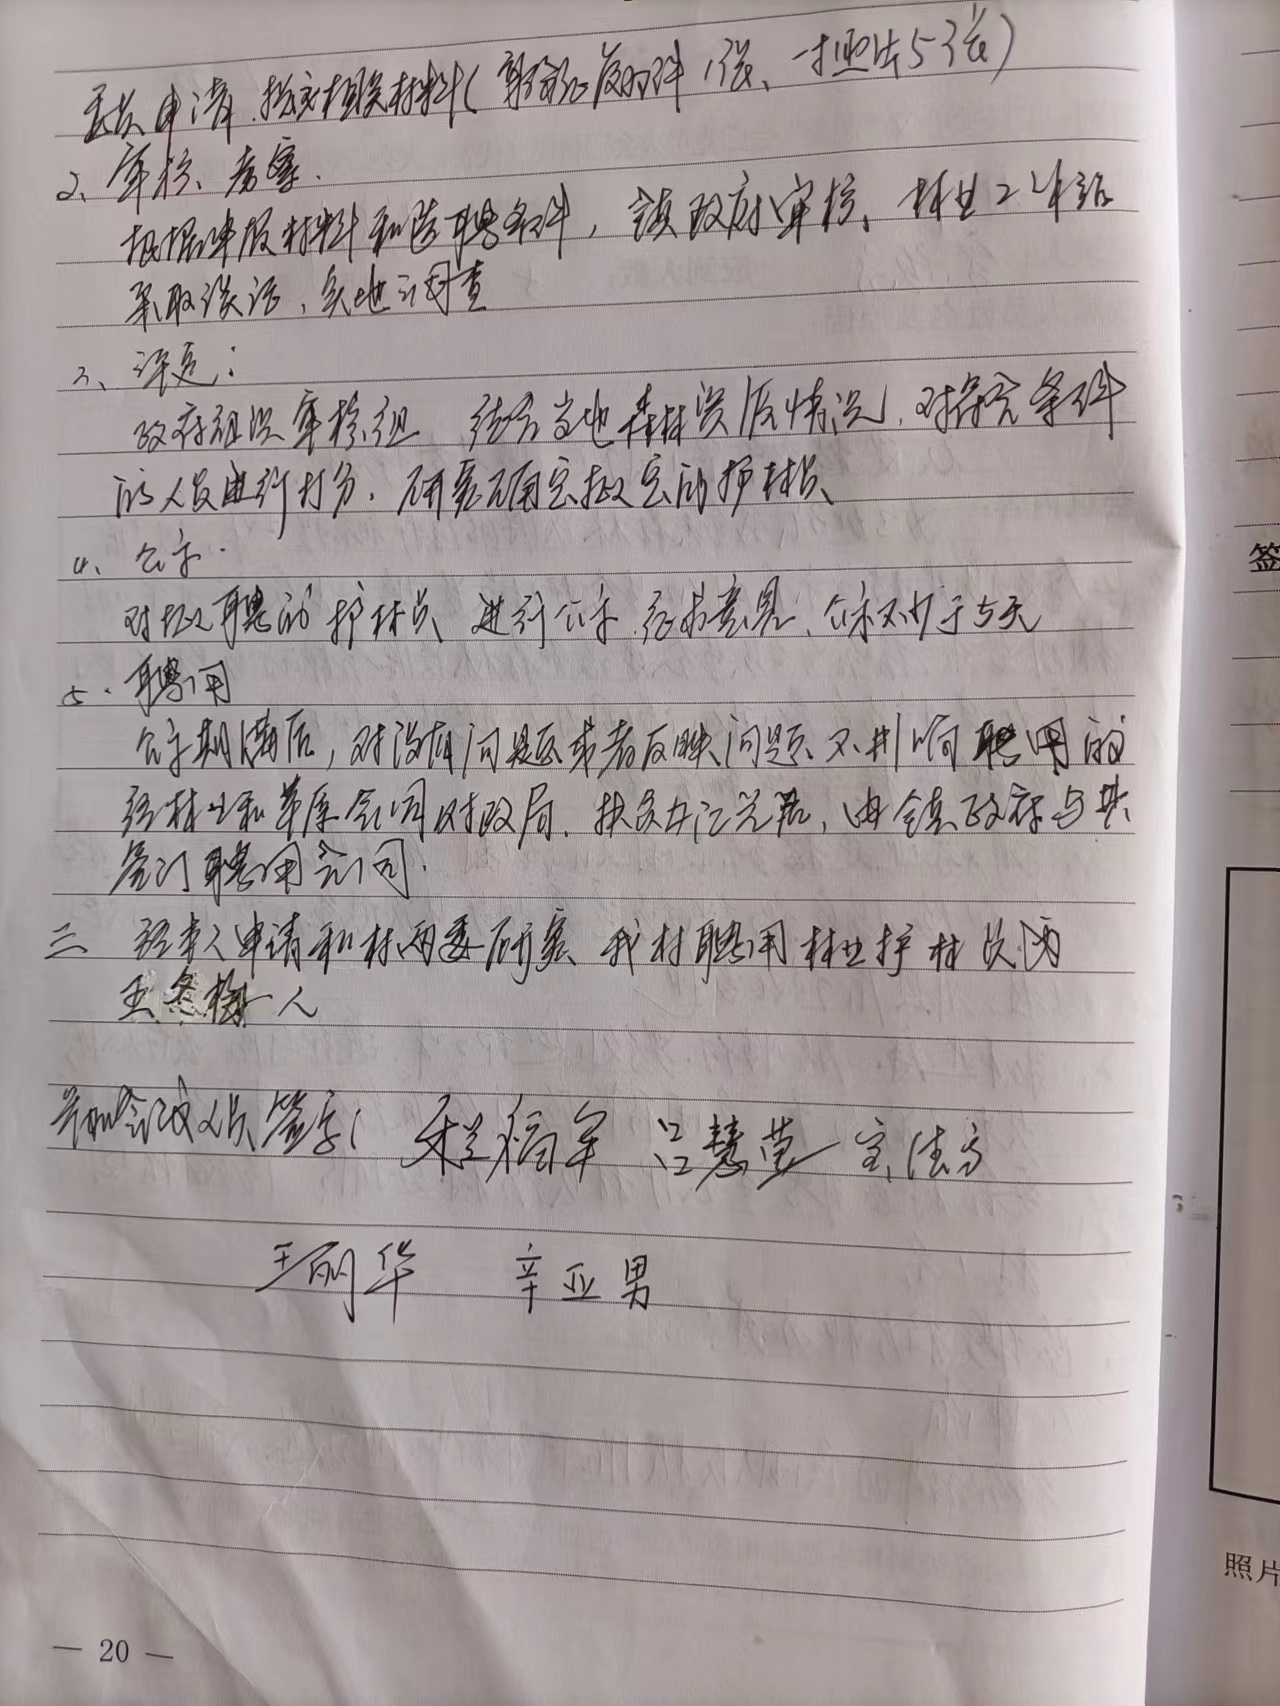 委员申请.提交相关材料(身份证复印件1张、一寸照片5张)
2、审核、考察.
根据申报材料和选聘条件，镇政府审核、林业工作站
采取谈话、实地调查
3、评定：
政府组织审核组 结合当地森林资源情况,对符合条件
的人员进行打分.研究确定拟定的护林员、
4、公示.
对拟聘的护林员 进行公示 征求意见、公示不少于5天
5.聘用
公示期满后，对没有问题或者反映问题不影响聘用的
经林业和草原会同财政局、扶贫办
，由镇政府与其
签订聘用合同.
三 经本人申请和村两委研究、我村聘用林业护林员为
王冬梅一人
参加会议人员签字:
吕慧莹
王丽华 辛亚男
— 20 —
签
照片